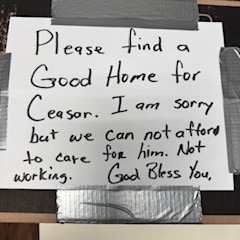 Please find a
Good Home for
Ceasar. I am sorry
but we can not afford
to care for him. Not
working. God Bless You,